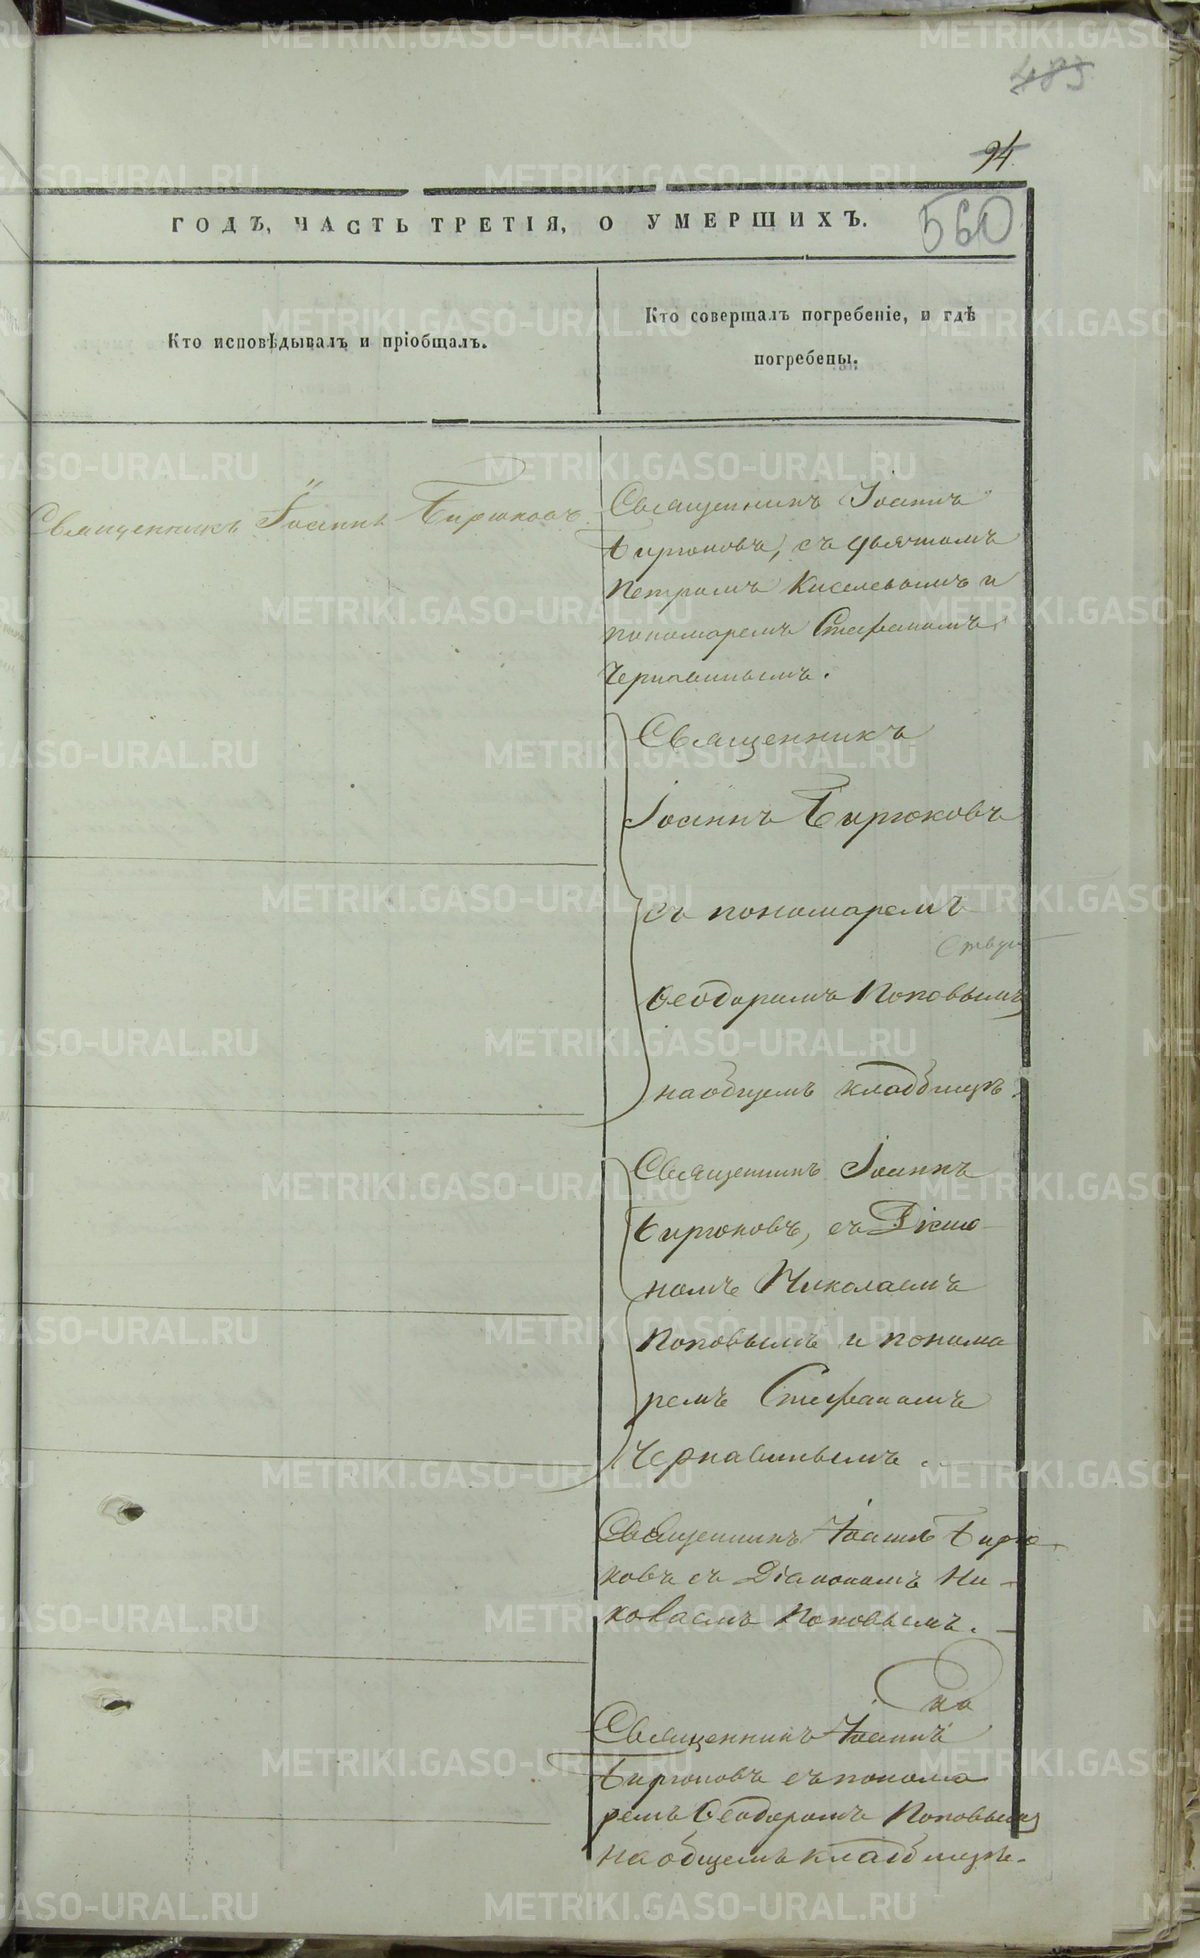 483
94
560
ГОДЪ, ЧАСТЬ ТРЕТІЯ, О УМЕРШИХЪ.
Кто исповѣдывалъ и пріобщалъ.
Кто совершалъ погребеніе, и гдѣ
погребены.
Священникъ Іоаннъ Бирюковъ
Священникъ Іоаннъ
Бирюковъ, съ дьячкомъ
Петромъ Киселевымъ и
пономаремъ Стефаномъ
Чернавинымъ.
Священникъ
Іоаннъ Бирюковъ
съ пономаремъ
Феодоромъ Поповымъ
на общемъ кладбищѣ.
Священникъ Іоаннъ
Бирюковъ, съ Діако
номъ Николаемъ
Поповымъ и понома
ремъ Стефаномъ
Чернавинымъ.
Священникъ Іоаннъ Бирю
ковъ съ Діакономъ Ни-
колаемъ Поповымъ.
на
Священникъ Іоаннъ
Бирюковъ съ понома
ремъ Феодоромъ Поповымъ
на общемъ кладбищѣ.
METRIKI.GASO-URAL.RU